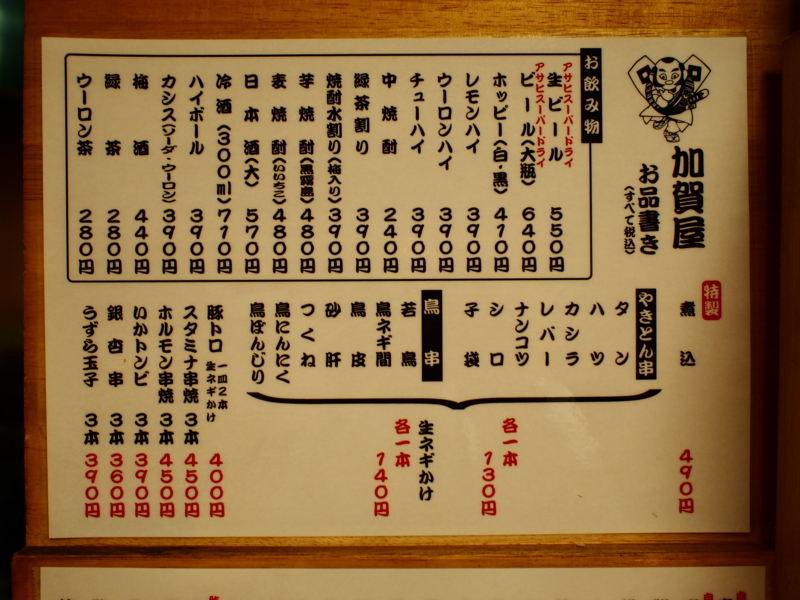 加賀屋
お品書き
(すべて税込)
お飲み物
アサヒスーパードライ
生ビール 550円
アサヒスーパードライ
ビール(大瓶) 640円
ホッピー(白・黒) 410円
レモンハイ 390円
ウーロンハイ 390円
チューハイ 390円
中焼酎 240円
緑茶割り 390円
焼酎水割り(梅入り) 390円
芋焼酎(黒霧島) 480円
麦焼酎(いいちこ) 480円
日本酒(大) 570円
冷酒(300ml) 710円
ハイボール 390円
カシス(ソーダ・ウーロン) 390円
梅酒 440円
緑茶 280円
ウーロン茶 280円
特製
煮込 490円
やきとん串
タン
ハツ
カシラ
レバー
ナンコツ
シロ
子袋
鳥串
若鳥
鳥ネギ間
鳥皮
砂肝
つくね
鳥にんにく
鳥ぼんじり
各一本
130円
生ネギかけ
各一本
140円
豚トロ 一皿2本 生ネギかけ 400円
スタミナ串焼 3本 450円
ホルモン串焼 3本 450円
いかトンビ 3本 390円
銀杏串 3本 360円
うずら玉子 3本 390円